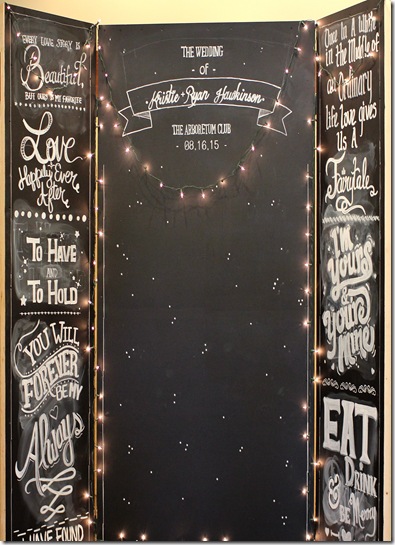 EVERY LOVE STORY IS
Beautiful,
BUT OURS IS MY FAVORITE
Love
&
Happily Ever
After
TO HAVE
AND
TO HOLD
YOU WILL
FOREVER
BE MY
Always
I HAVE FOUND
THE WEDDING
- OF -
Kristie & Ryan Hawkinson
THE ARBORETUM CLUB
- 08.16.15 -
Once In A While
in the Middle of
an Ordinary
life love gives
Us A
Fairytale
I'm
Yours
&
You're
Mine
EAT
DRINK
&
Be Merry